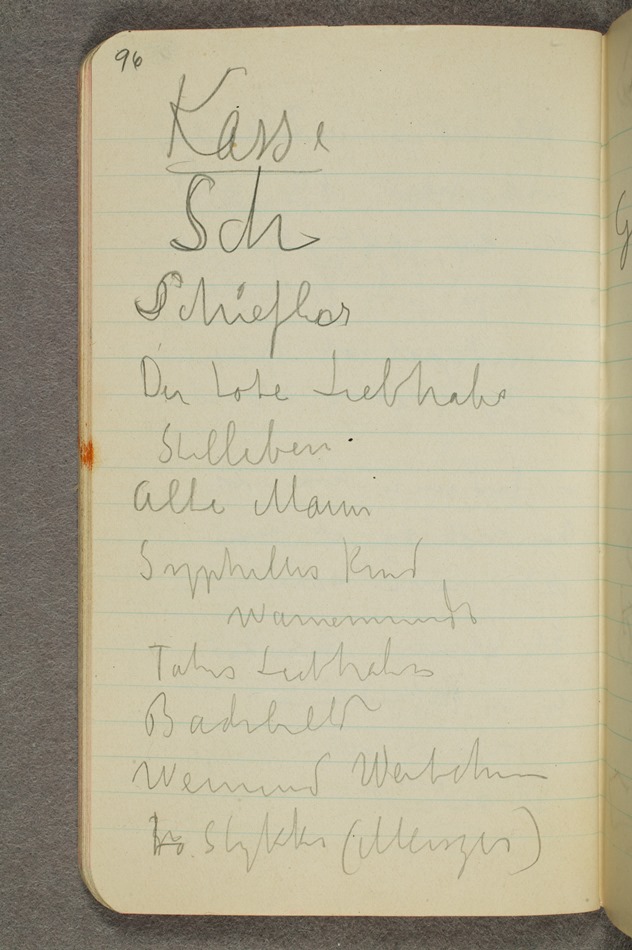 96
Kasse
Sch
Schiefler
Der tote Liebhaber
Stilleben
Alte Mann
Syphilis Kind
Warnemünde
Liebhaber
Badebild
Weinend Weibchen
Stykker (Menzer)